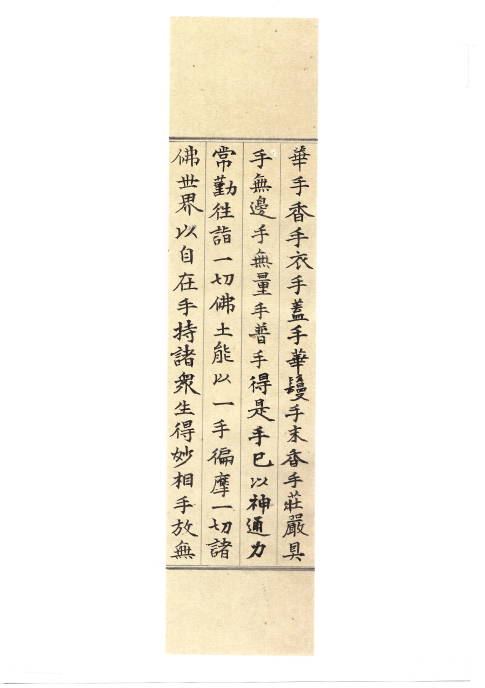 華手香手衣手蓋手華鬘手末香手莊嚴具
手無邊手無量手普手得是手已以神通力
常勤往詣一切佛土能以一手徧摩一切諸
佛世界以自在手持諸衆生得妙相手放無